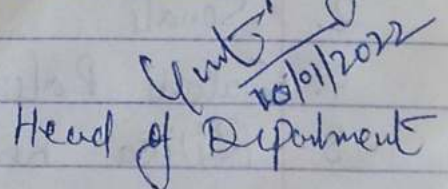 10/01/2022
Head of Department